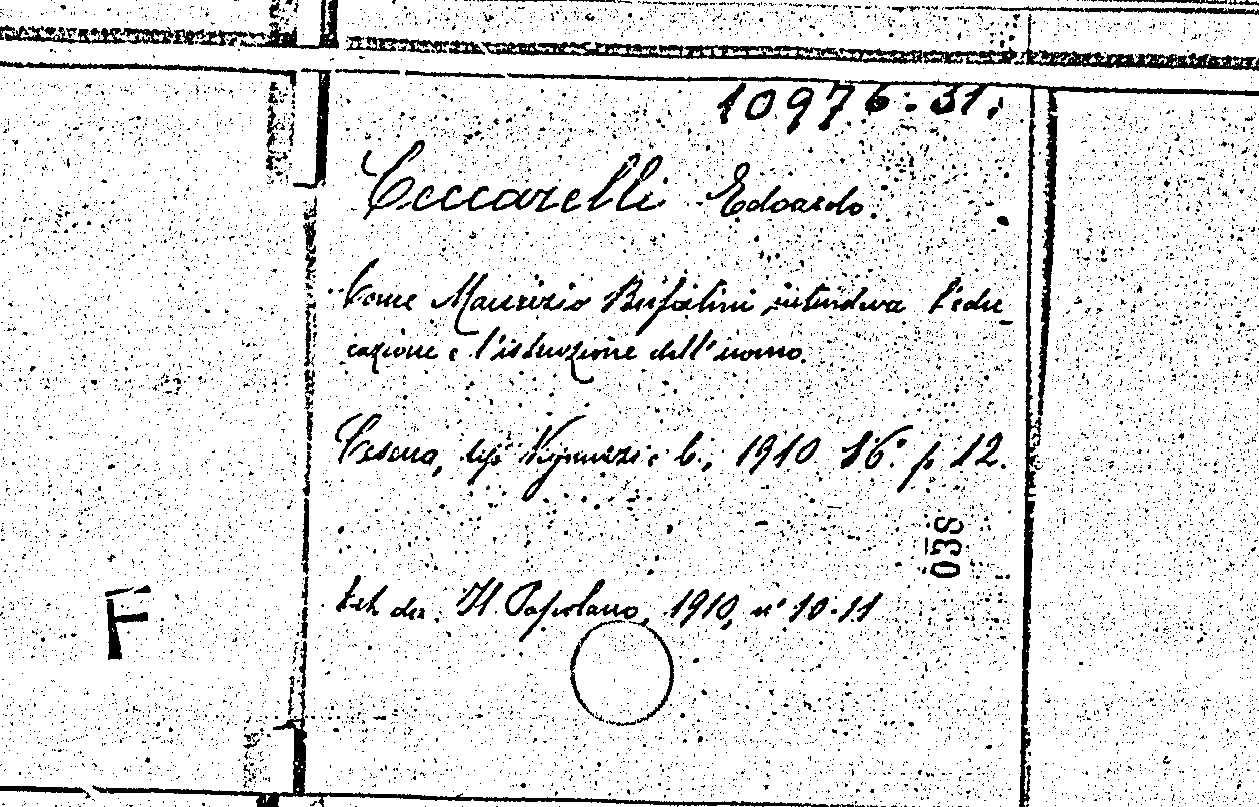 10976.31.
Ceccarelli Edoardo.
Come Maurizio Bufalini intendeva l'edu-
cazione e l'istruzione dell'uomo.
Cesena, tip Vignuzzi e C., 1910 16° p 12.
038
Est da. Il Popolano, 1910, n° 10-11
F